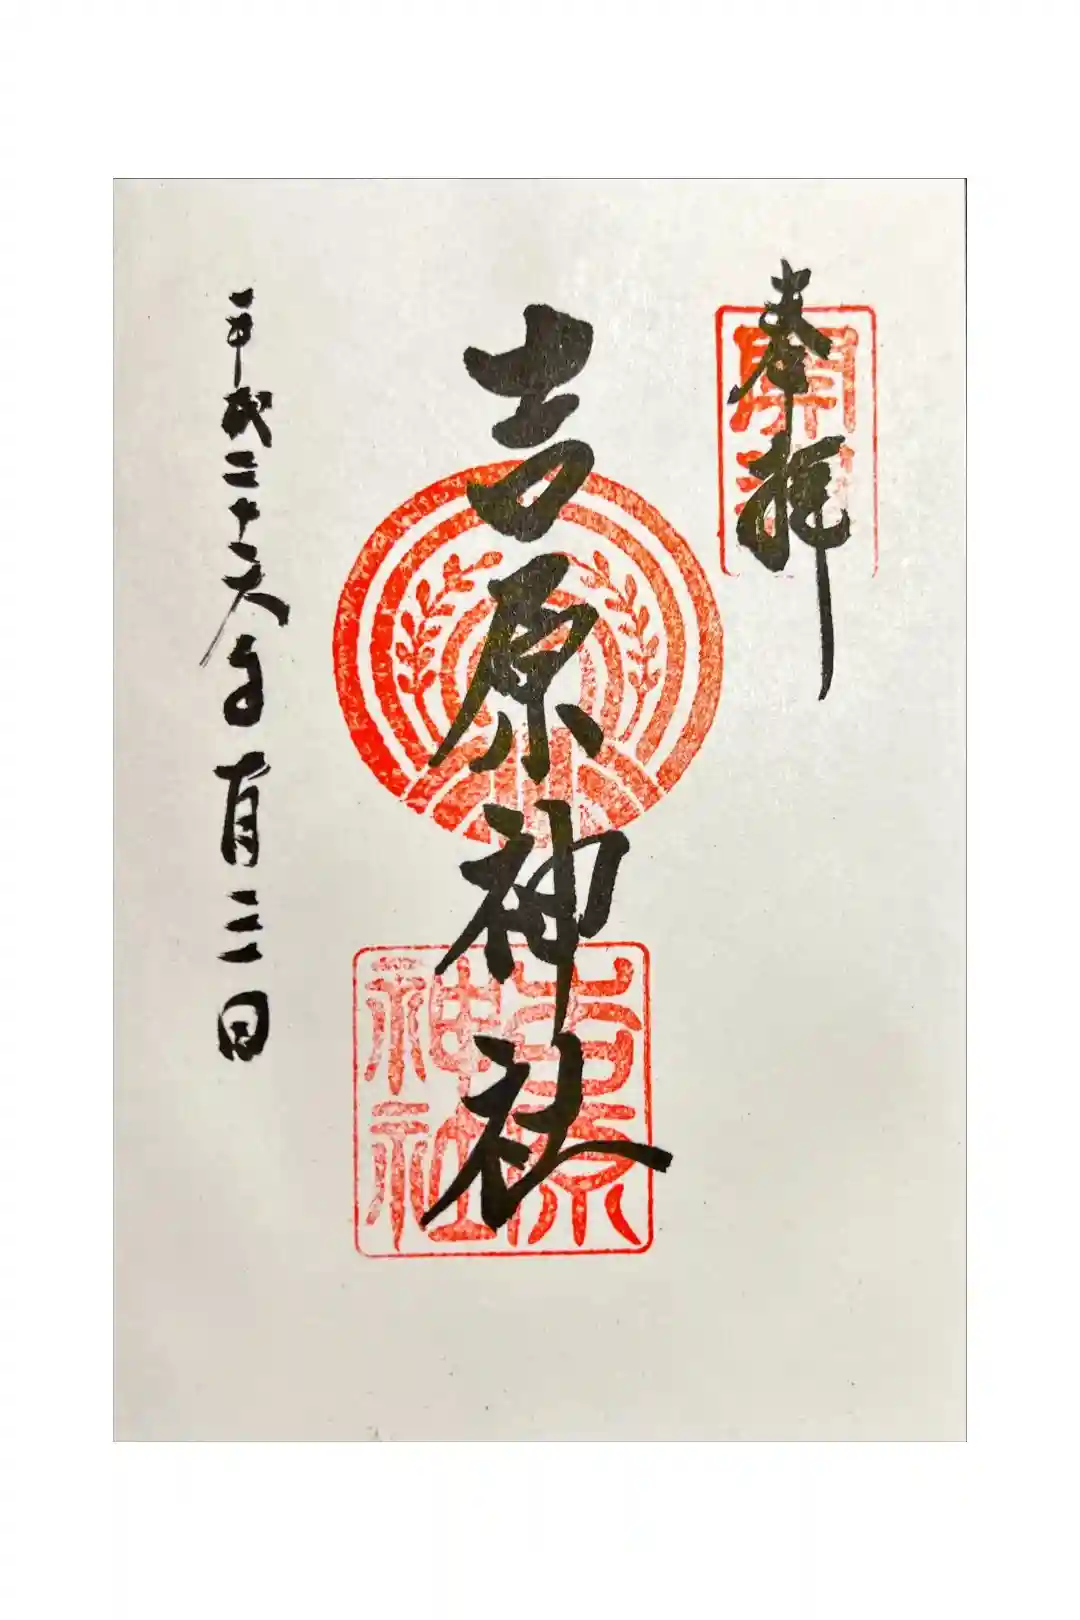 奉拝
開運
吉原神社
吉原神社
平成二十六年一月三日